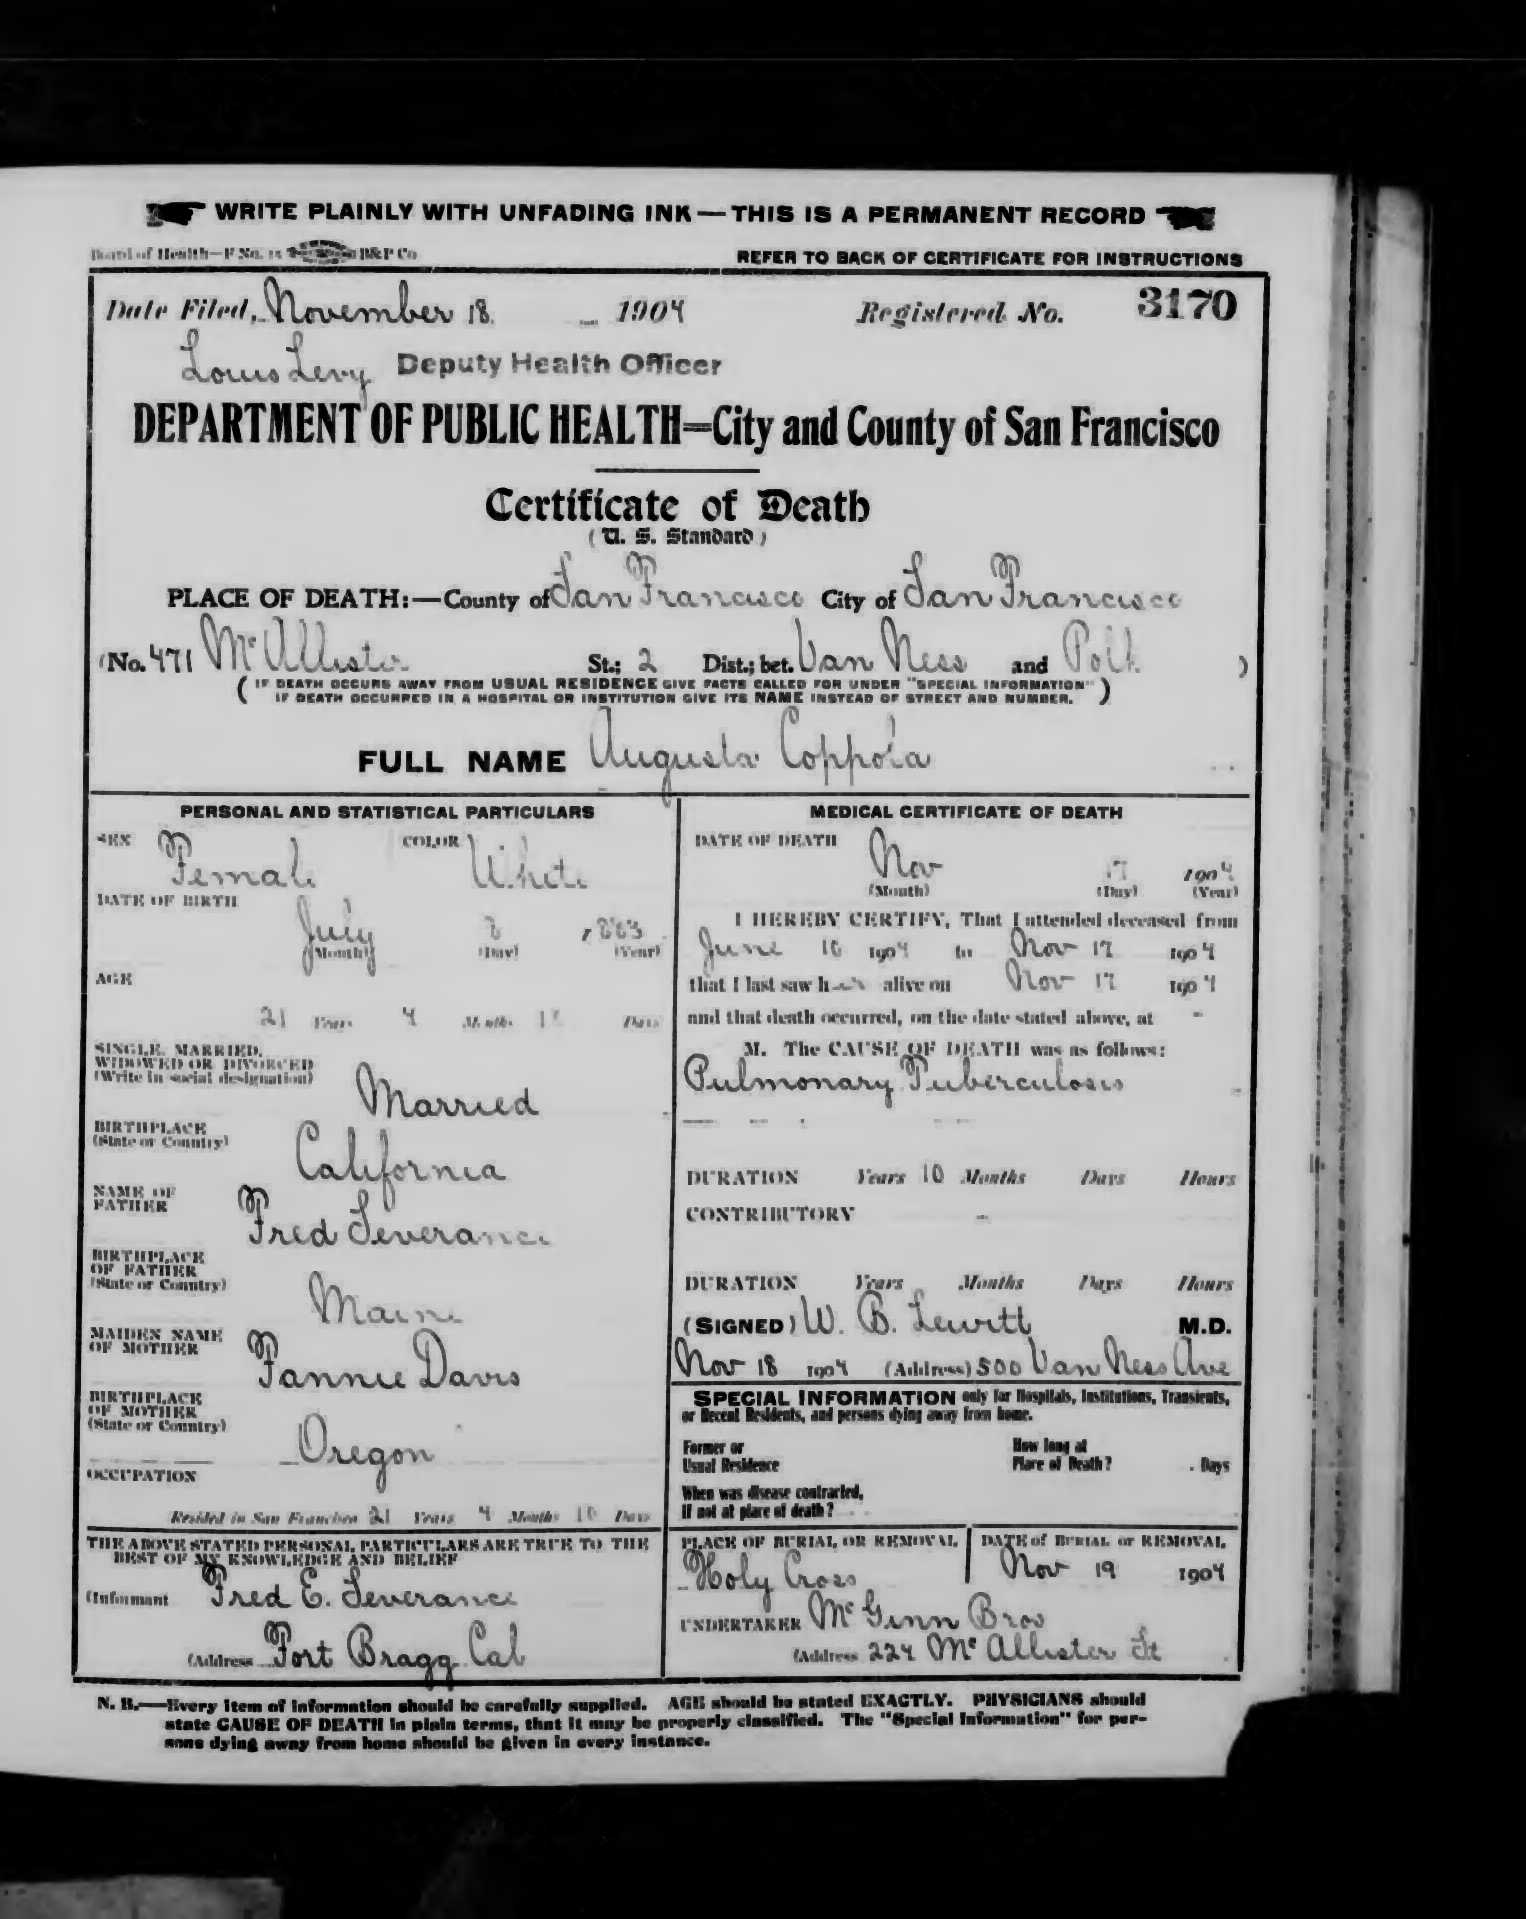 WRITE PLAINLY WITH UNFADING INK—THIS IS A PERMANENT RECORD
Board of Health—F No. 14 B&P Co REFER TO BACK OF CERTIFICATE FOR INSTRUCTIONS
Date Filed, November 18 1904 Registered No. 3170
Louis Levy Deputy Health Officer
DEPARTMENT OF PUBLIC HEALTH=City and County of San Francisco
Certificate of Death
(U. S. Standard)
PLACE OF DEATH:—County of San Francisco City of San Francisco
(No. 471 McAllister St.; 2 Dist.; bet. Van Ness and Polk )
( IF DEATH OCCURS AWAY FROM USUAL RESIDENCE GIVE FACTS CALLED FOR UNDER "SPECIAL INFORMATION"
IF DEATH OCCURRED IN A HOSPITAL OR INSTITUTION GIVE ITS NAME INSTEAD OF STREET AND NUMBER. )
FULL NAME Augusta Coppola
PERSONAL AND STATISTICAL PARTICULARS
SEX Female COLOR White
DATE OF BIRTH
July 1883
(Month) (Day) (Year)
AGE
21 Years 4 Months Days
SINGLE, MARRIED,
WIDOWED OR DIVORCED
(Write in social designation)
Married
BIRTHPLACE
(State or Country)
California
NAME OF
FATHER
Fred Severance
BIRTHPLACE
OF FATHER
(State or Country)
Maine
MAIDEN NAME
OF MOTHER
Fannie Davis
BIRTHPLACE
OF MOTHER
(State or Country)
Oregon
OCCUPATION
Resided in San Francisco 21 Years 4 Months 10 Days
THE ABOVE STATED PERSONAL PARTICULARS ARE TRUE TO THE
BEST OF MY KNOWLEDGE AND BELIEF
(Informant Fred E. Severance
(Address Fort Bragg Cal
MEDICAL CERTIFICATE OF DEATH
DATE OF DEATH
Nov 17 1904
(Month) (Day) (Year)
I HEREBY CERTIFY, That I attended deceased from
June 10 1904 to Nov 17 1904
that I last saw her alive on Nov 17 1904
and that death occurred, on the date stated above, at -
M. The CAUSE OF DEATH was as follows:
Pulmonary Tuberculosis
DURATION Years 10 Months Days Hours
CONTRIBUTORY -
DURATION Years Months Days Hours
(SIGNED) W. B. Lewitt M.D.
Nov 18 1904 (Address) 500 Van Ness Ave
SPECIAL INFORMATION only for Hospitals, Institutions, Transients,
or Recent Residents, and persons dying away from home.
Former or
Usual Residence
How long at
Place of Death? Days
When was disease contracted,
If not at place of death?
PLACE OF BURIAL OR REMOVAL
Holy Cross
DATE of BURIAL or REMOVAL
Nov 19 1904
UNDERTAKER McGinn Bros
(Address 224 McAllister St
N. B.—Every item of information should be carefully supplied. AGE should be stated EXACTLY. PHYSICIANS should
state CAUSE OF DEATH in plain terms, that it may be properly classified. The "Special Information" for per-
sons dying away from home should be given in every instance.